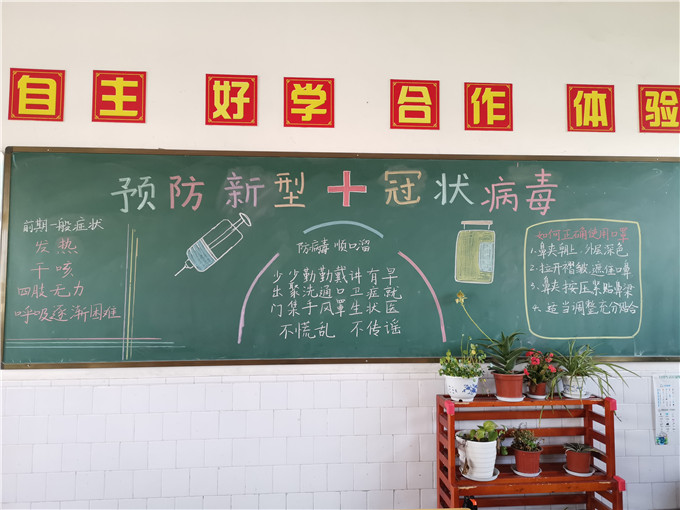 自主 好学 合作 体验
预防新型冠状病毒
前期一般症状
发热
干咳
四肢无力
呼吸逐渐困难
防病毒 顺口溜
少出门
少聚集
勤洗手
勤通风
戴口罩
讲卫生
有症状
早就医
不慌乱 不传谣
如何正确使用口罩
1.鼻夹朝上.外层深色
2.拉开褶皱.遮住口鼻
3.鼻夹按压紧贴鼻梁
4.适当调整充分贴合